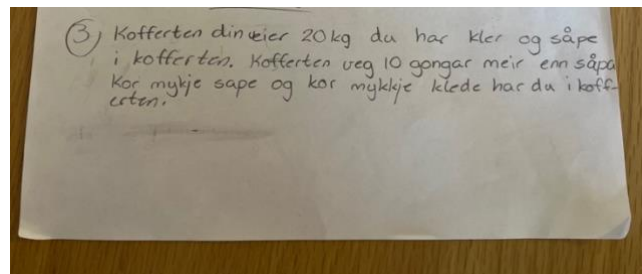 3) Kofferten din veier 20kg du har kler og såpe
i kofferten. Kofferten veg 10 gongar meir enn såpa
Kor mykje sape og kor mykkje klede har du i koff-
erten.